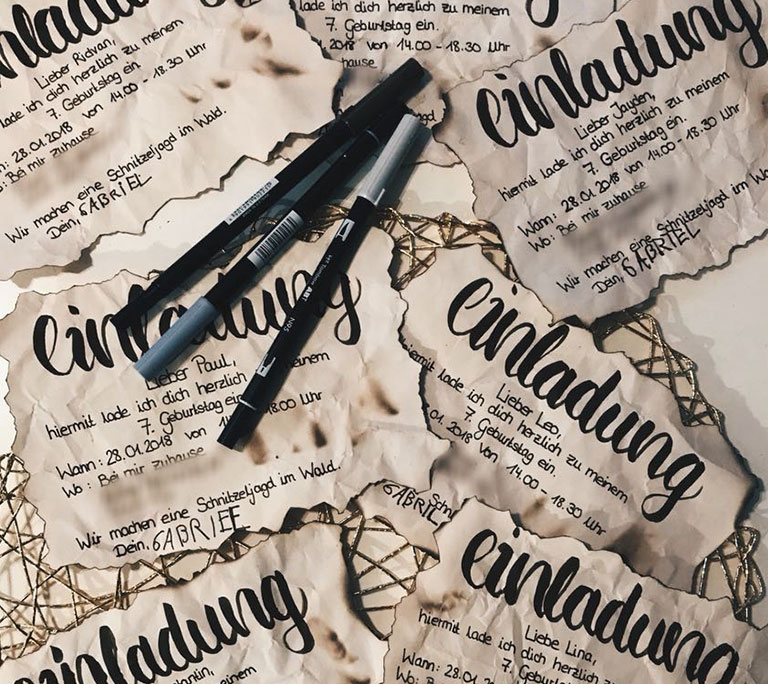 einladung
Lieber Ridvan,
lade ich dich herzlich zu meinem
7. Geburtstag ein.
28.01.2018 von 14.00 - 18.30 Uhr
Bei mir zuhause
Wir machen eine Schnitzeljagd im Wald.
Dein, GABRIEL
lade ich dich herzlich zu meinem
7. Geburtstag ein.
2018 von 14.00 - 18.30 Uhr
hause
einladung
Lieber Jayden,
hiermit lade ich dich herzlich zu meinem
7. Geburtstag ein.
Wann: 28.01.2018 von 14.00 - 18.30 Uhr
Wo: Bei mir zuhause
Wir machen eine Schnitzeljagd im
Dein, GABRIEL
einladung
Lieber Paul,
hiermit lade ich dich herzlich
7. Geburtstag
Wann: 28.01.2018
Uhr
Wo: Bei mir zuhause
Wir machen eine Schnitzeljagd im Wald.
Dein, GABRIEL
Tombow ART
N95
einladung
Lieber Leo,
hiermit lade ich dich herzlich zu meinem
7. Geburtstag ein.
2018 von 14.00 - 18.30 Uhr
GABRIEL
einladung
einladung
Liebe Lina,
hiermit lade ich dich herzlich
7.
Wann: 28.01